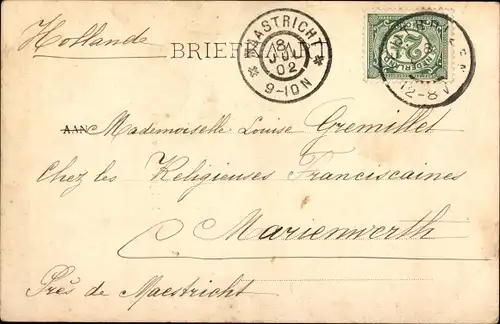 Hollande
BRIEFKAART
MAASTRICHT
8 JUL 02
9-10N
2½
12-8V
AAN Mademoiselle Louise Gremillet
Chez les Religieuses Franciscaines
Marienwerth
Près de Maestricht